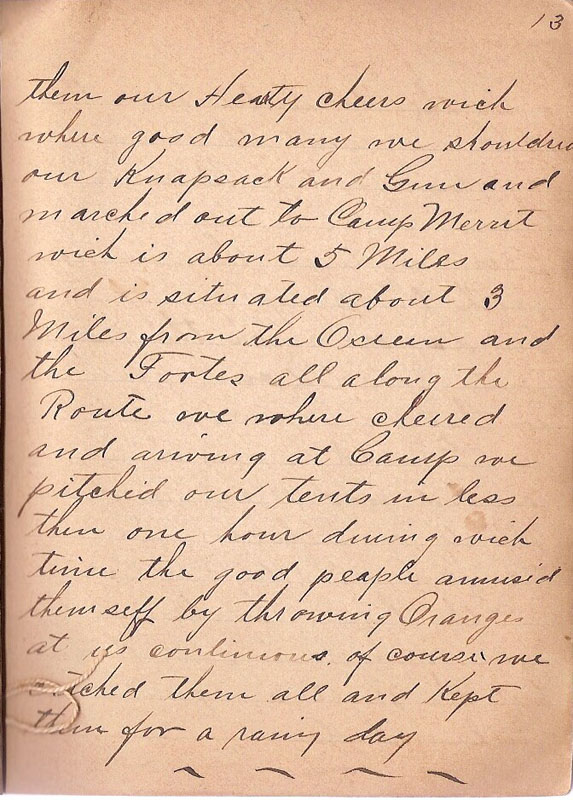 13
them our Hearty cheers wich
where good many we shouldre
our Knapsack and Gun and
marched out to Camp Merrit
wich is about 5 Miles
and is situated about 3
Miles from the Ocean and
the Fortes all along the
Route we where cheered
and ariving at Camp we
pitched our tents in less
then one hour during wich
time the good people amusid
themself by throwing Oranges
at us continious. of course we
catched them all and Kept
them for a rainy day